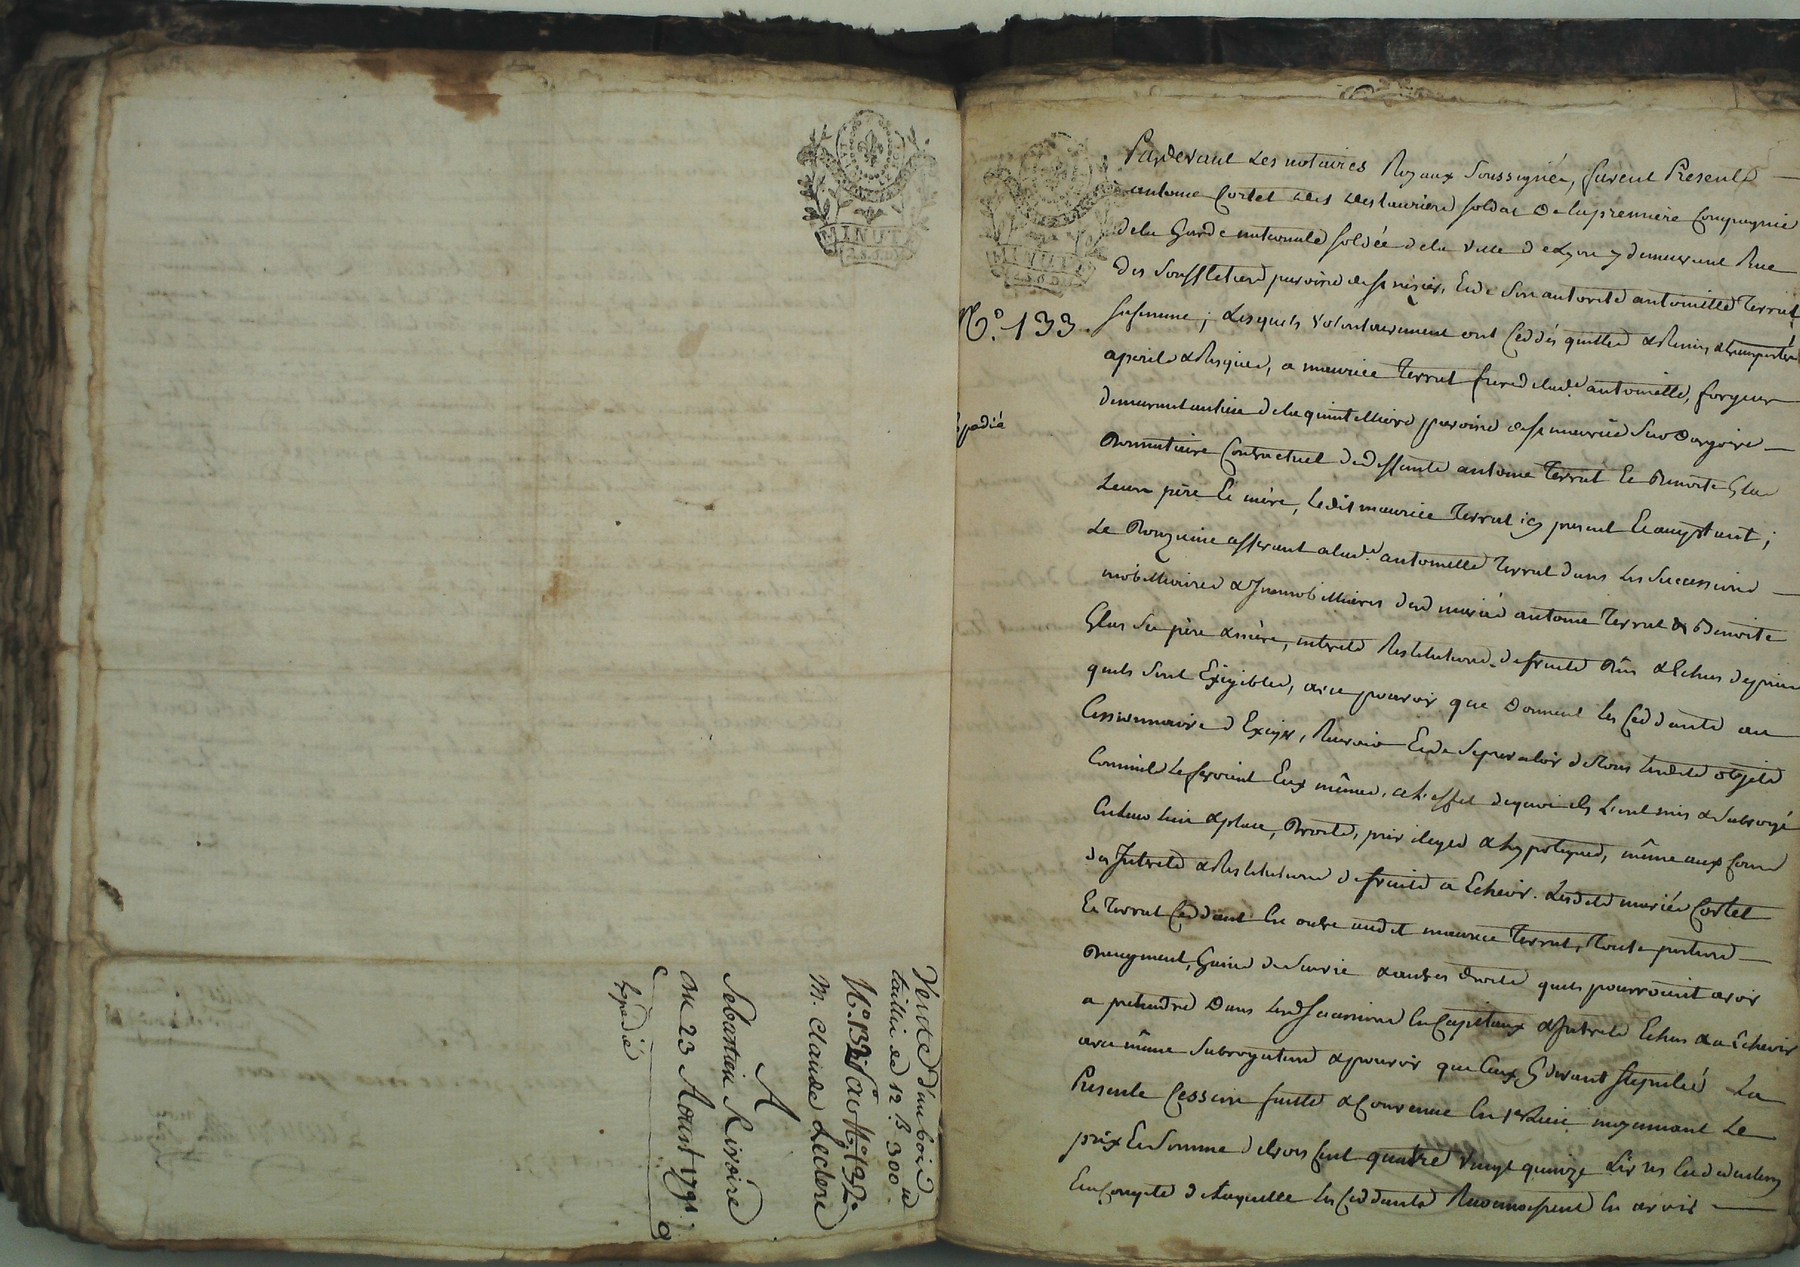 MINUTE
2. S. 6. D.
Vente d'un bois
taillis de 12.# 300
N.° 132
M. Claude Leclerc
A
Sebastien Rivoire
Du 23 Aoust 1791.
Expedié
MINUTE
2. S. 6. D.
N.° 133.
Pardevant Les notaires Royaux soussignés, furent Presents
antoine Cortet soldat de la premiere Compagnie
de la Garde nationale soldée de la ville de Lyon y demeurant Rue
des Souffletiers paroisse de st nizier, Et de son autorité antoinette Terrat
sa femme; Lesquels volontairement ont Ceddés quittés & Remis & transportés
a perils & Risques, a maurice Terrat frere de lad.e antoinette, forgeur
demeurant au lieu de la paroisse de st maurice sur dargoire
Donnataire Contractuel de deffunts antoine Terrat Et Benoite Glas
Leurs père Et mère, Ledit maurice Terrat icy present Et acceptant;
Le Onzieme afferant a lad.e antoinette Terrat dans Les Successions
mobilliaires & Immobilliaires desd mariés antoine Terrat & Benoite
Glas Ses père & mère, interets Restitutions de fruits Dus & Echus depuis
quils sont Exigibles, avec pouvoir que donnent les Ceddants au
Cessionnaire d'Exiger, Recevoir Et de se prevaloir de tous lesdits objets
Comme ils Le feroient Eux mêmes, a l'effet de quoi ils L'ont mis & Subrogé
En Leur Lieu & place, Droits, privileges & hypoteques, même aux Cours
des Interets & Restitutions de fruits a Echeoir. Lesdits mariés Cortet
Et Terrat Ceddent En outre audit maurice Terrat, Toute portion
D'augment, Gains de Survie & autres droits quils pourroient avoir
a pretendre Dans Lesd Successions En Capitaux & Interets Echus & a Echeoir
avec même Subrogation & pouvoir que Ceux Cy devant Stipulés La
Presente Cession faitte & Convenue En Lieu moyennant Le
prix Et Somme de trois Cent quatre vingt quinze Livres En deduction
Et a Compte de Laquelle les Ceddants Reconnoissent En avoir